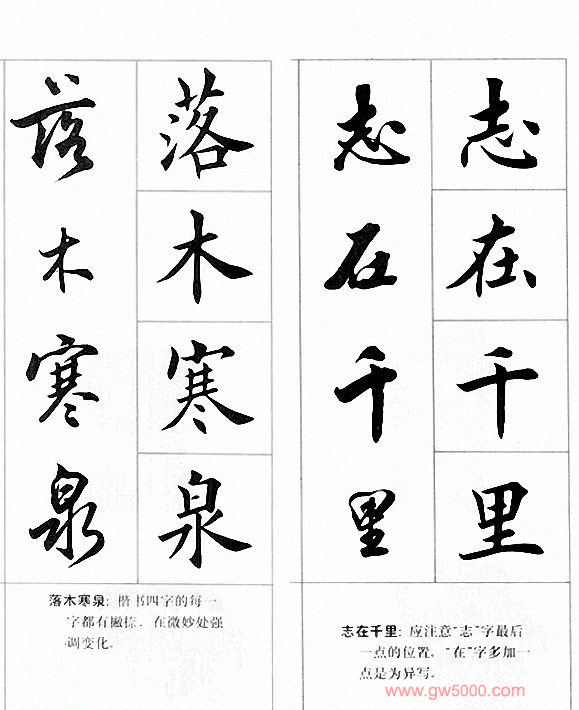 志在千里
志在千里
志在千里：应注意“志”字最后
一点的位置，“在”字多加一
点是为异写。
落木寒泉
落木寒泉
落木寒泉：楷书四字的每一
字都有撇捺．在微妙处强
调变化。
www.gw5000.com